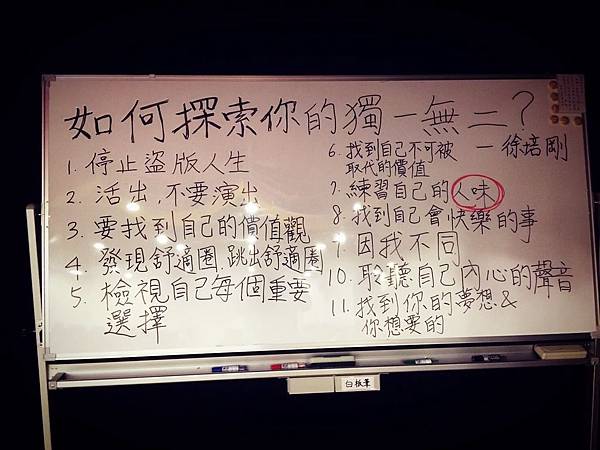 如何探索你的獨一無二?
—徐培剛
1. 停止盜版人生
2. 活出,不要演出
3. 要找到自己的價值觀
4. 發現舒適圈.跳出舒適圈
5. 檢視自己每個重要
選擇
6. 找到自己不可被
取代的價值
7. 練習自己的人味
8. 找到自己會快樂的事
9. 因我不同
10. 聆聽自己內心的聲音
11. 找到你的夢想&
你想要的
白板筆